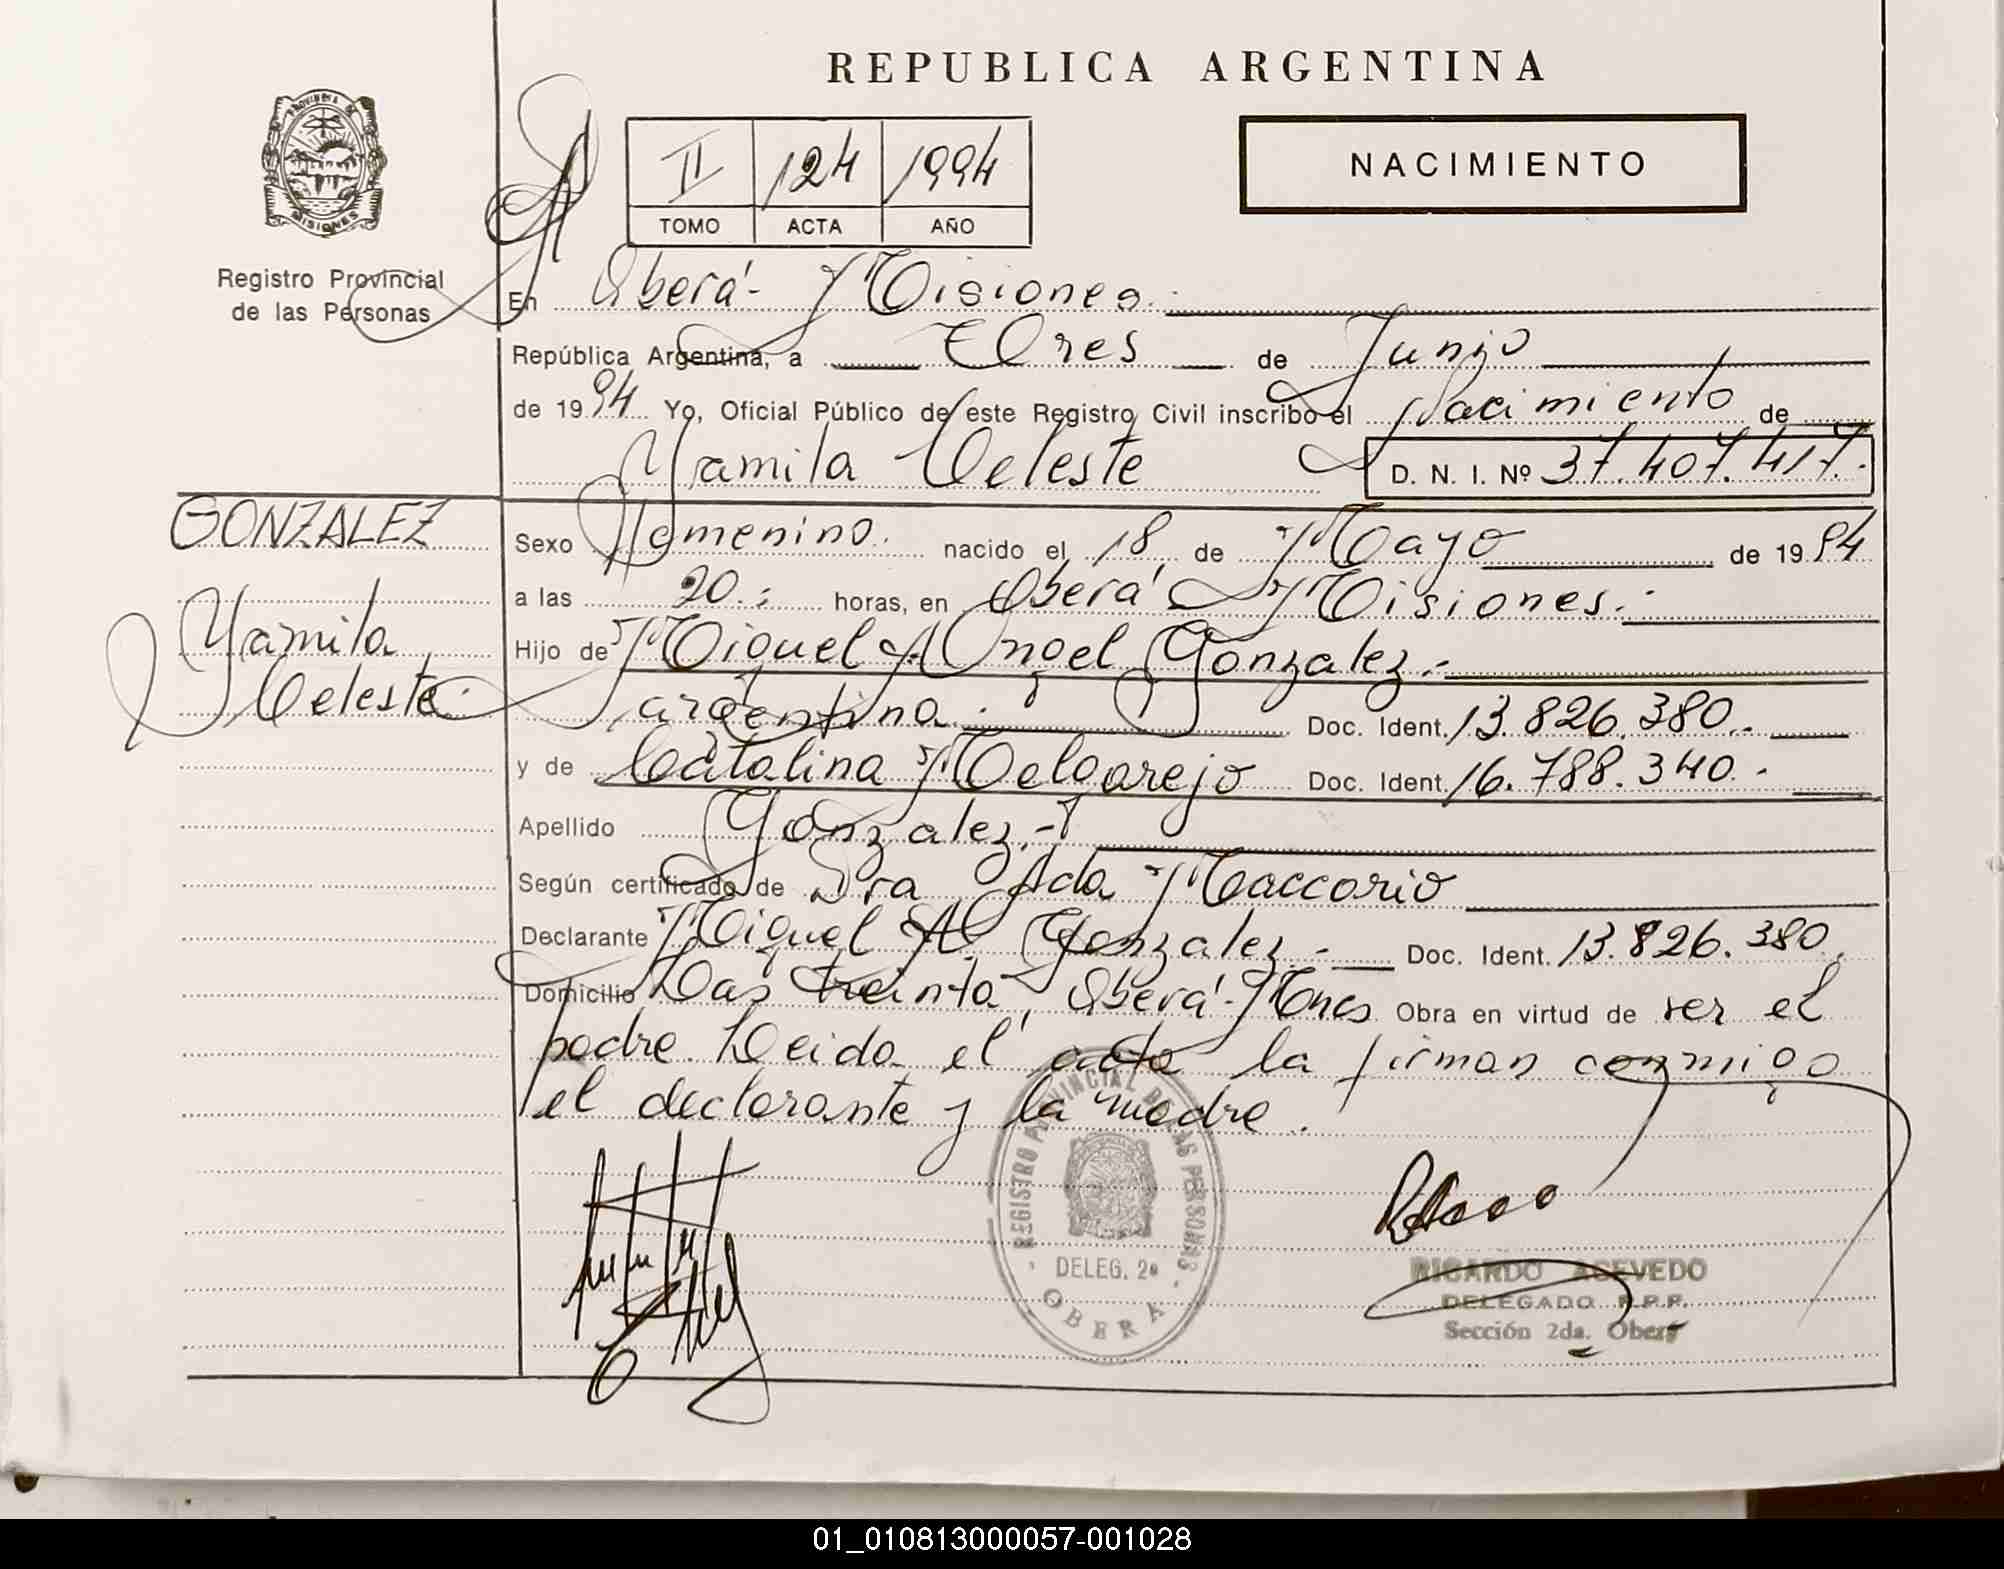 REPUBLICA ARGENTINA
PROVINCIA DE
MISIONES
Registro Provincial
de las Personas
II 124 1994
TOMO ACTA AÑO
NACIMIENTO
En Oberá - Misiones.-
República Argentina, a Tres de Junio
de 1994 Yo, Oficial Público de este Registro Civil inscribo el Nacimiento de
Yamila Celeste D. N. I. Nº 37.407.417.-
GONZALEZ
Yamila
Celeste.
Sexo Femenino. nacido el 18 de Mayo de 1994
a las 20.: horas, en Oberá Misiones.-
Hijo de Miguel Angel Gonzalez.-
argentina.- Doc. Ident. 13.826.380.-
y de Catalina Melgarejo Doc. Ident. 16.788.340.-
Apellido Gonzalez.-
Según certificado de Dra Ada Maccorio
Declarante Miguel A. Gonzalez.- Doc. Ident. 13.826.380.
Domicilio Las treinta, Oberá-Mnes Obra en virtud de ser el
padre. Leida el acta la firman conmigo
el declarante y la madre.
REGISTRO PROVINCIAL DE LAS PERSONAS
DELEG. 2ª
OBERA
RICARDO ACEVEDO
DELEGADO R.P.P.
Sección 2da. Oberá
01_010813000057-001028